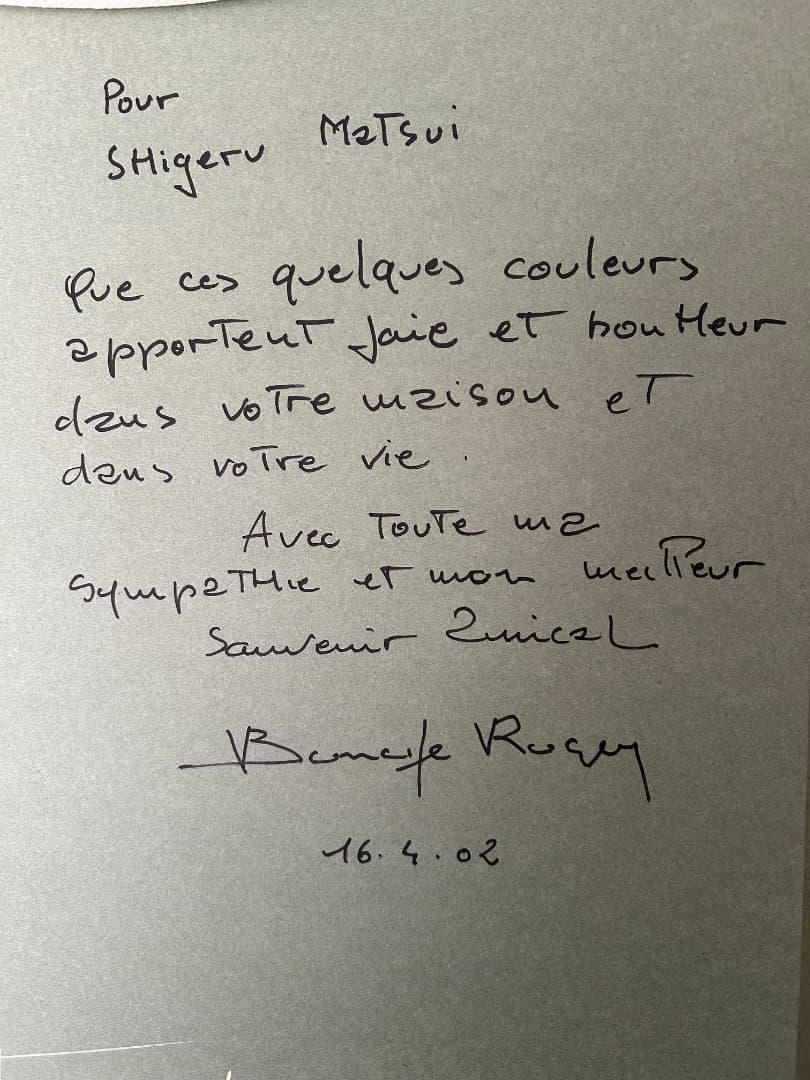 Pour
SHigeru MaTsui
Que ces quelques couleurs
apporTenT joie eT bonHeur
dans voTre maison eT
dans voTre vie.
Avec TouTe ma
SympaTHie eT mon meilleur
Souvenir amical
16.4.02